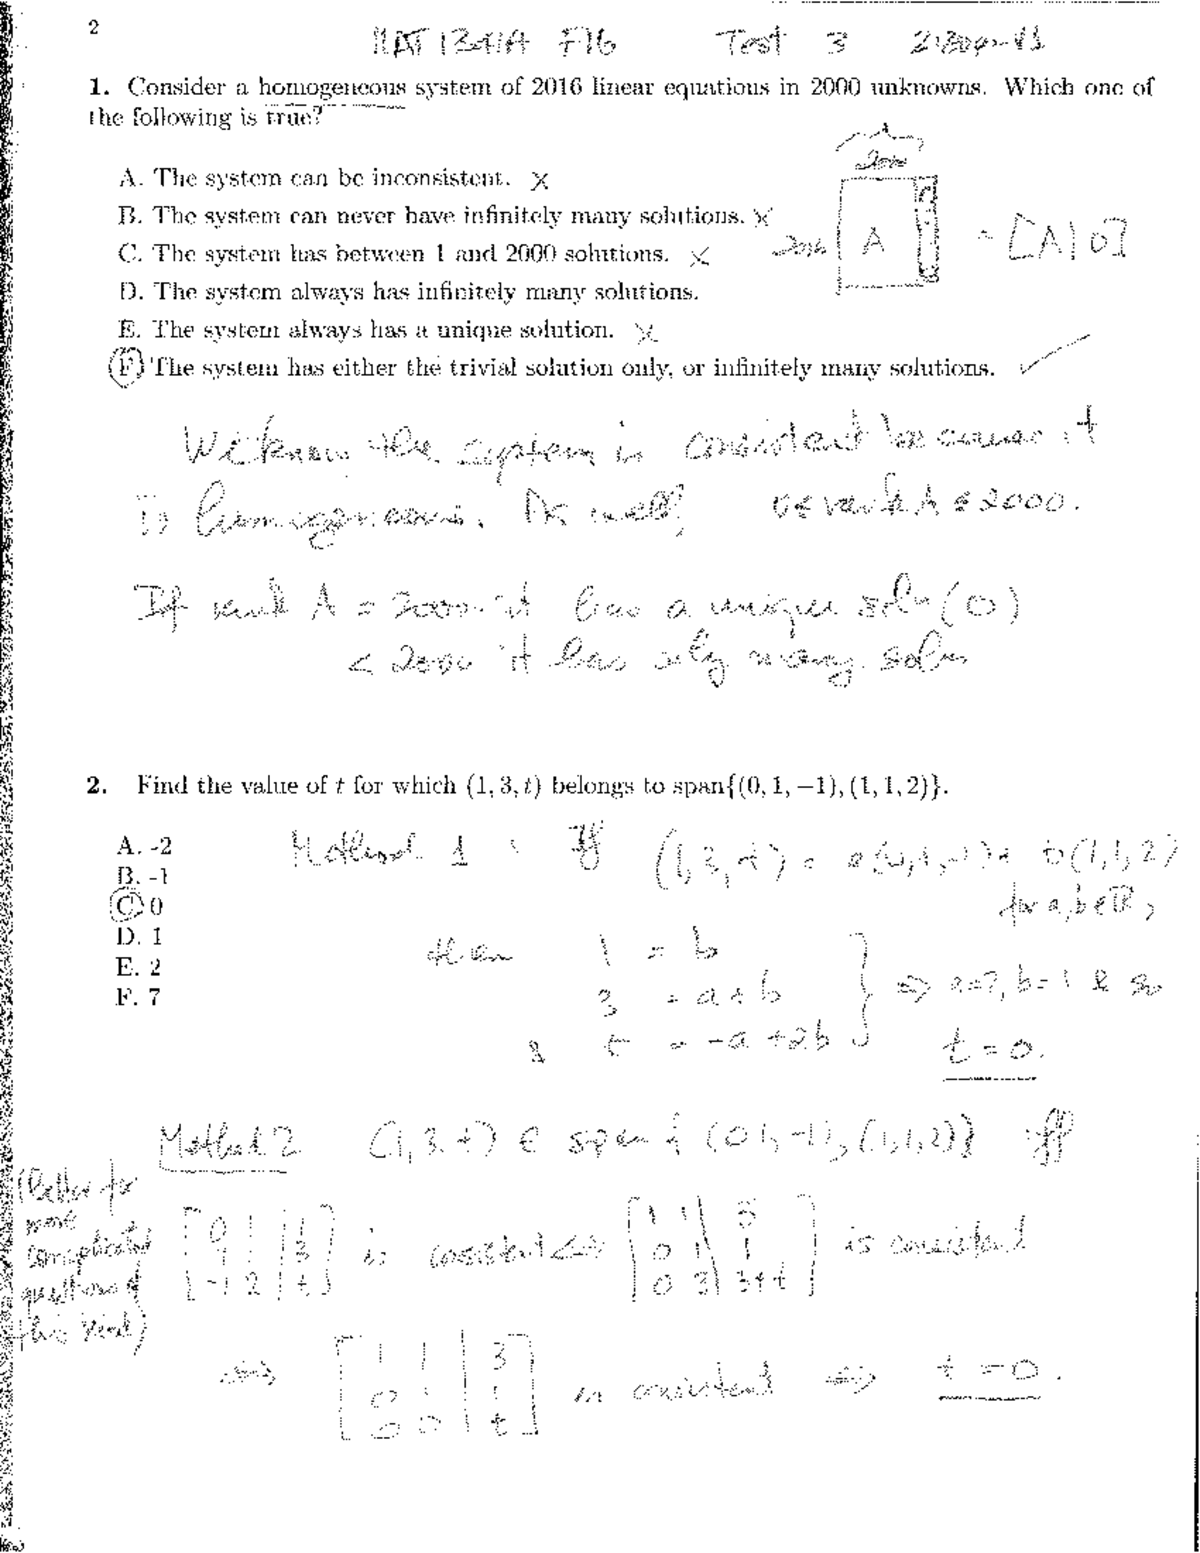 2
MAT 1341A F16 Test 3
1. Consider a homogeneous system of 2016 linear equations in 2000 unknowns. Which one of
the following is true?
A. The system can be inconsistent. X
B. The system can never have infinitely many solutions. X
C. The system has between 1 and 2000 solutions. X
D. The system always has infinitely many solutions.
E. The system always has a unique solution. X
F. The system has either the trivial solution only, or infinitely many solutions. ✓
2000
2016 A = [A|0]
We know the system is consistent because it
is homogeneous. As well, 0 ≤ rank A ≤ 2000.
If rank A = 2000 it has a unique soln (0)
< 2000 it has many soln
2. Find the value of t for which (1, 3, t) belongs to span{(0, 1, −1), (1, 1, 2)}.
A. -2
B. -1
C. 0
D. 1
E. 2
F. 7
Method 1 : If (1, 3, t) = a(0,1,-1) + b(1,1,2)
for a, b ∈ ℝ,
then 1 = b
3 = a + b ⇒ a=2, b=1 & so
& t = -a + 2b t = 0.
Method 2 (1, 3, t) ∈ span { (0 1, -1), (1,1,2)} iff
(better for
more
complicated
questions of
this kind)
[0 1 | 1
1 1 | 3
-1 2 | t] is consistent ⇔ [1 1 | 3
0 1 | 1
0 3 | 3+t] is consistent
⇔ [1 1 | 3
0 1 | 1
0 0 | t] is consistent ⇔ t = 0.